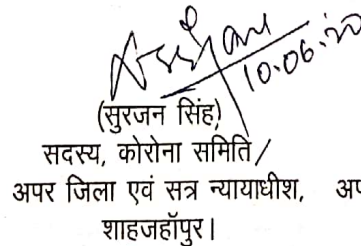 10.06.20
(सुरजन सिंह)
सदस्य, कोरोना समिति/
अपर जिला एवं सत्र न्यायाधीश, अप
शाहजहॉपुर।